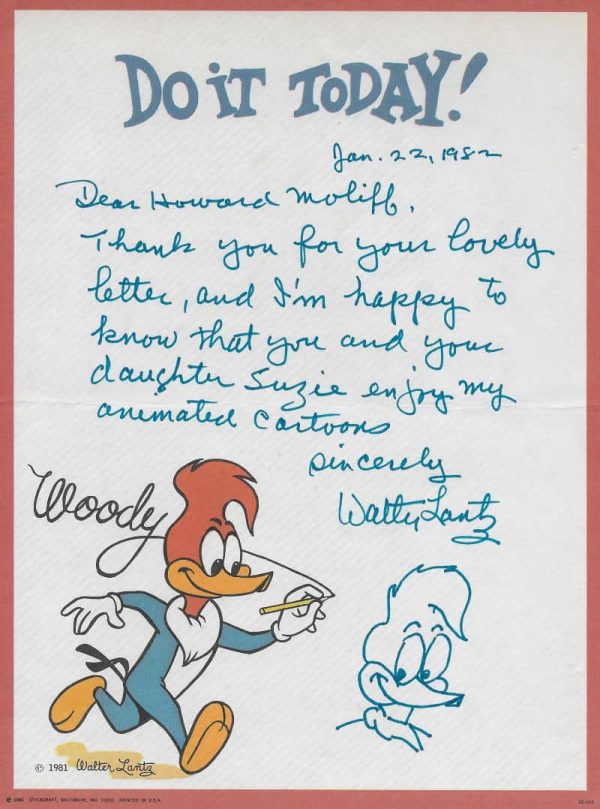 Do it TODAY!
Jan. 22, 1982
Dear Howard Moliff,
Thank you for your lovely
letter, and I'm happy to
know that you and your
daughter Suzie enjoy my
animated cartoons
Sincerely
Walter Lantz
Woody
© 1981 Walter Lantz
© 1981 STYLECRAFT, BALTIMORE, MD. PRINTED IN U.S.A.